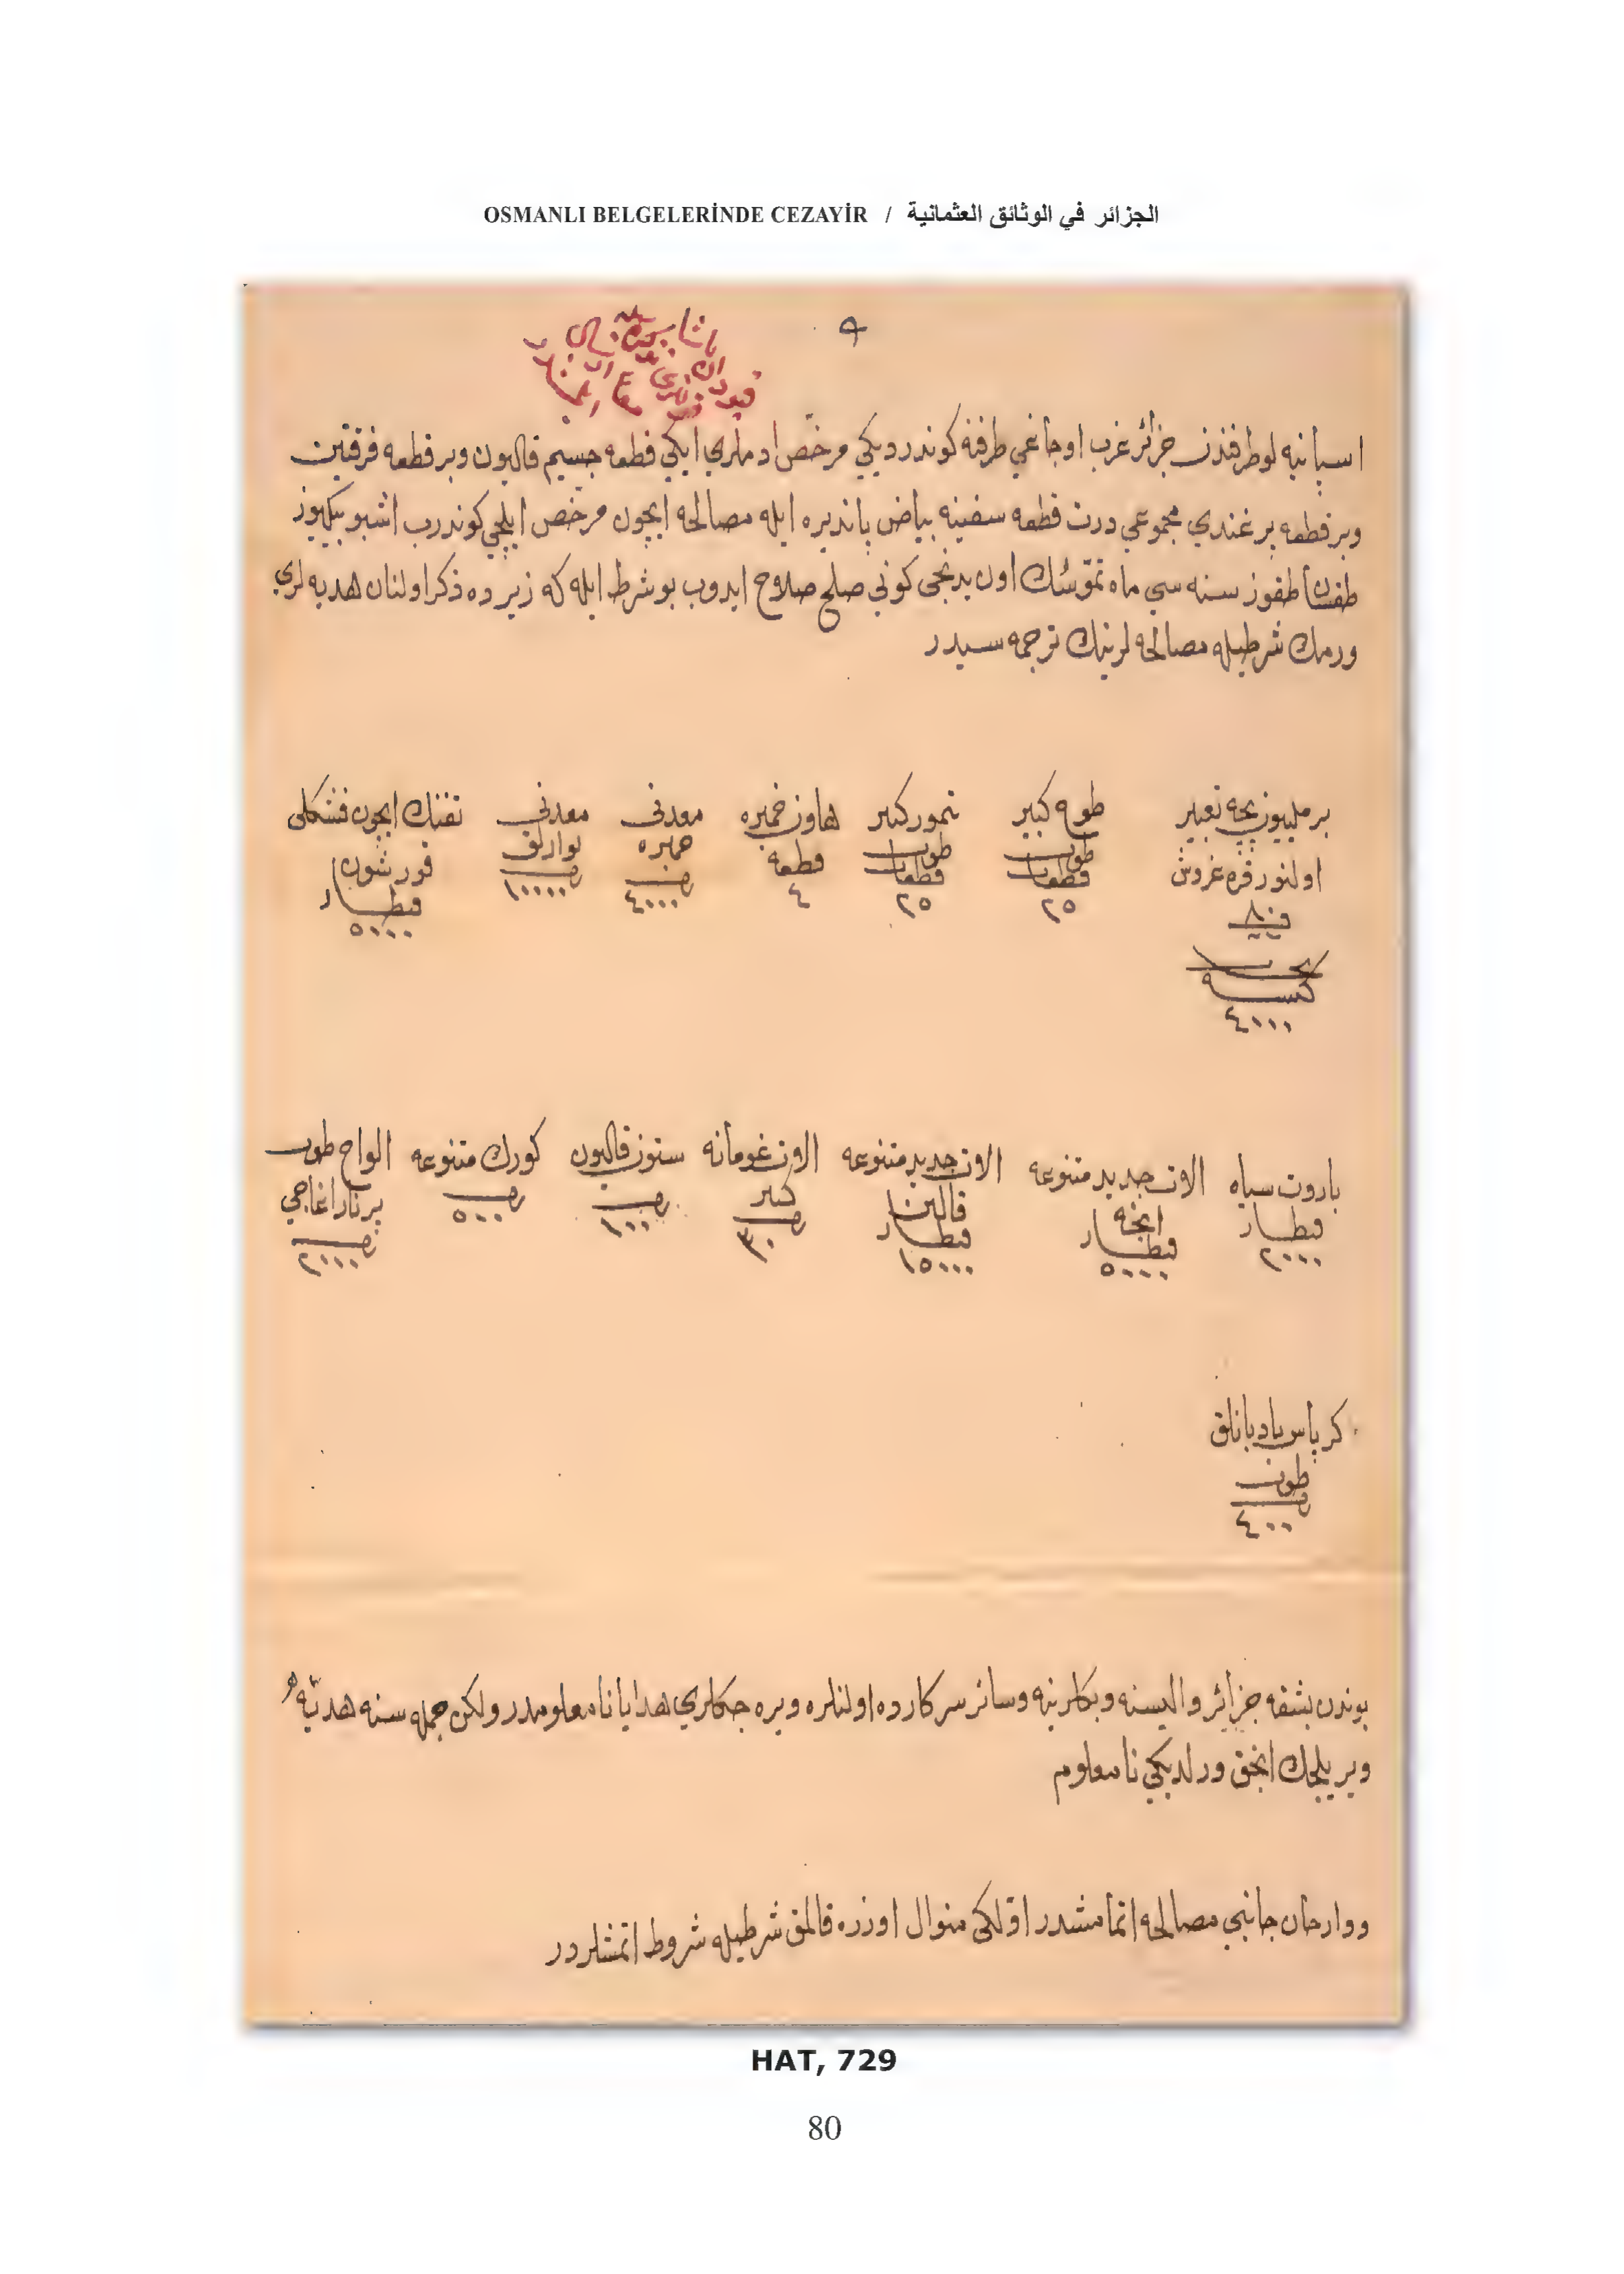 OSMANLI BELGELERİNDE CEZAYİR / الجزائر في الوثائق العثمانية
اسپانیه لو طرفندن جزائر غرب اوجاغی طرفنه کوندردیکی مرخص ادملری ایکی قطعه جسیم قالیون وبر قطعه فرقتین
وبر قطعه برغندی مجموعی درت قطعه سفینه بیاض باندیره ایله مصالحه ایچون مرخص ایلچی کوندرب اشبو بیکیوز
طقسان طقوز سنه سی ماه تموزك اون یدنجی کونی صلح صلاح ایدوب بو شرط ایله که زیرده ذکر اولنان هدیه لری
ورمك شرطیله مصالحه لرینك ترجمه سیدر
بر ملیون بچه تعبیر اولنور قره غروش
کیسه ٤٠٠٠
طوپ کبیر قطعات ٢٥
کبیر طوپ قطعات ٢٥
هاون خمبره قطعه ٤
معدنی خمبره ٤٠٠٠
معدنی یوارلق ١٠٠٠٠
تفنك ایچون فشکلی قورشون قنطار ٥٠٠٠
باروت سیاه قنطار ٢٠٠٠
الات جدید متنوعه اینجه قنطار ٥٠٠٠
الات جدید متنوعه قالین قنطار ١٥٠٠٠
الات غومانه کبیر ٣٠
ستون قالیون ١٠٠
کورك متنوعه ٥٠٠
الواح طوپ برنار اغاجی ٢٠٠٠
کرپاس بادبانلق طوپ ٤٠٠
بوندن بشقه جزائر والیسنه وبکلرینه وسائر سرکارده اولنلره ویره جکلری هدایا نامعلومدر ولکن جمله سنه هدیه
ویریلجك انجق ورلدیکی نامعلوم
ووارحان جانبی مصالحه اتمامشدر اولکی منوال اوزره قالمق شرطیله شروط اتمشلردر
HAT, 729
80